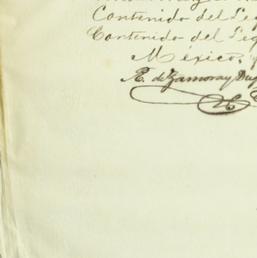 Contenido del Leg
Contenido del Leg
México, y
R. de Zamora y Duq